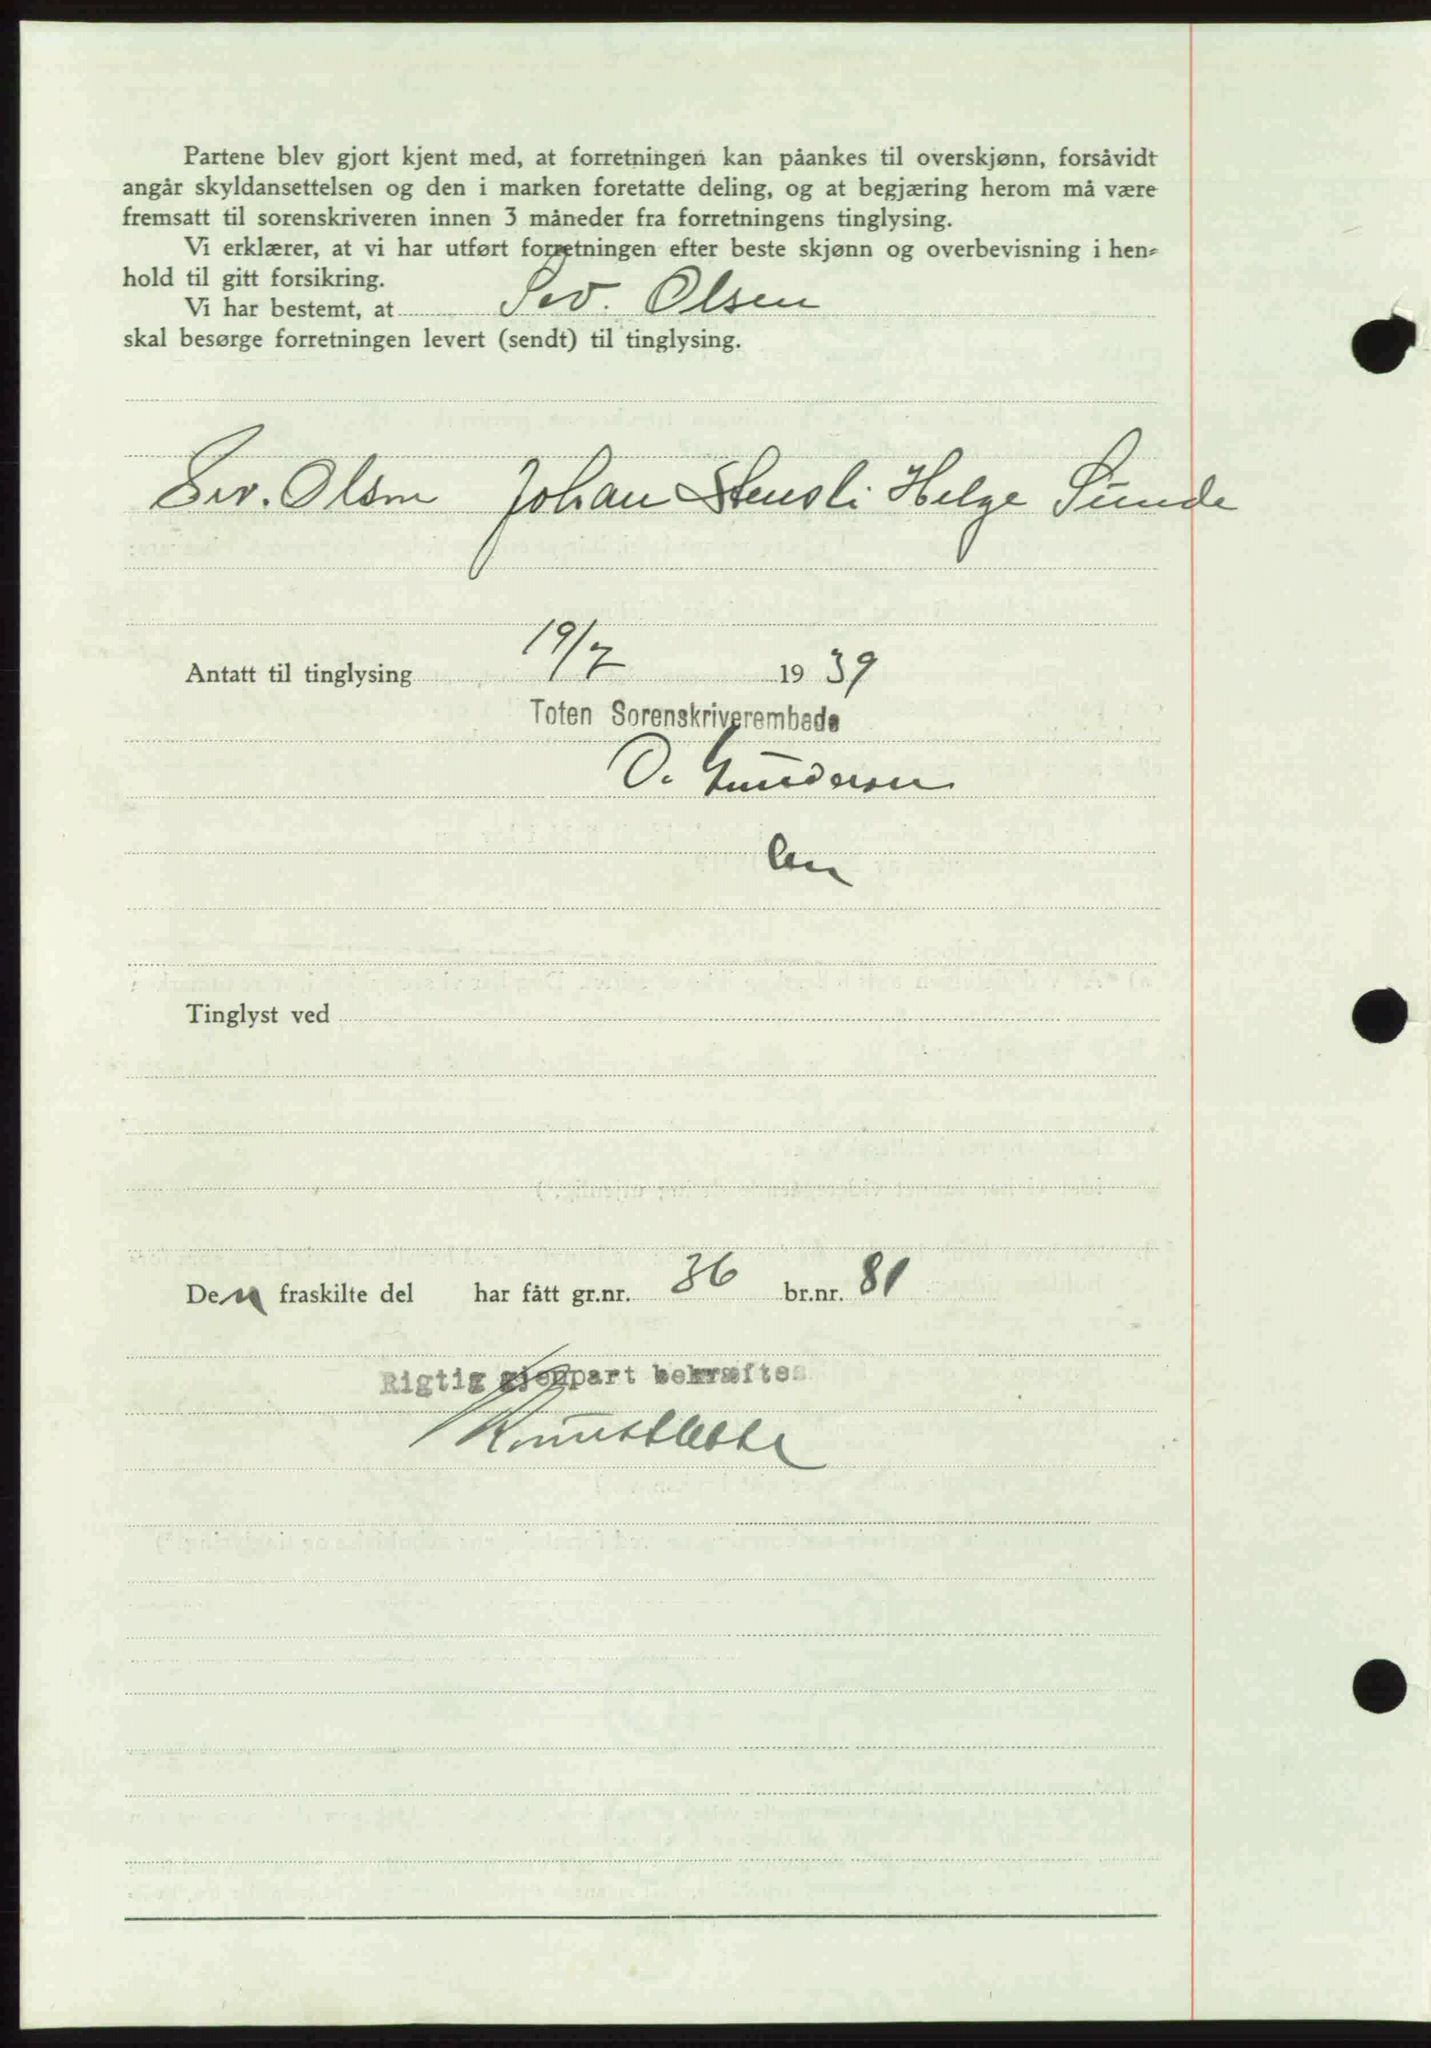 Partene blev gjort kjent med, at forretningen kan påankes til overskjønn, forsåvidt
angår skyldansettelsen og den i marken foretatte deling, og at begjæring herom må være
fremsatt til sorenskriveren innen 3 måneder fra forretningens tinglysing.
Vi erklærer, at vi har utført forretningen efter beste skjønn og overbevisning i hen-
hold til gitt forsikring.
Vi har bestemt, at Sev. Olsen
skal besørge forretningen levert (sendt) til tinglysing.
Sev. Olsen Johan Stensli Helge Sunde
Antatt til tinglysing 19/7 1939
Toten Sorenskriverembede
O. Gunderson
Tinglyst ved
Den fraskilte del har fått gr.nr. 36 br.nr. 81
Rigtig gjenpart bekræftes